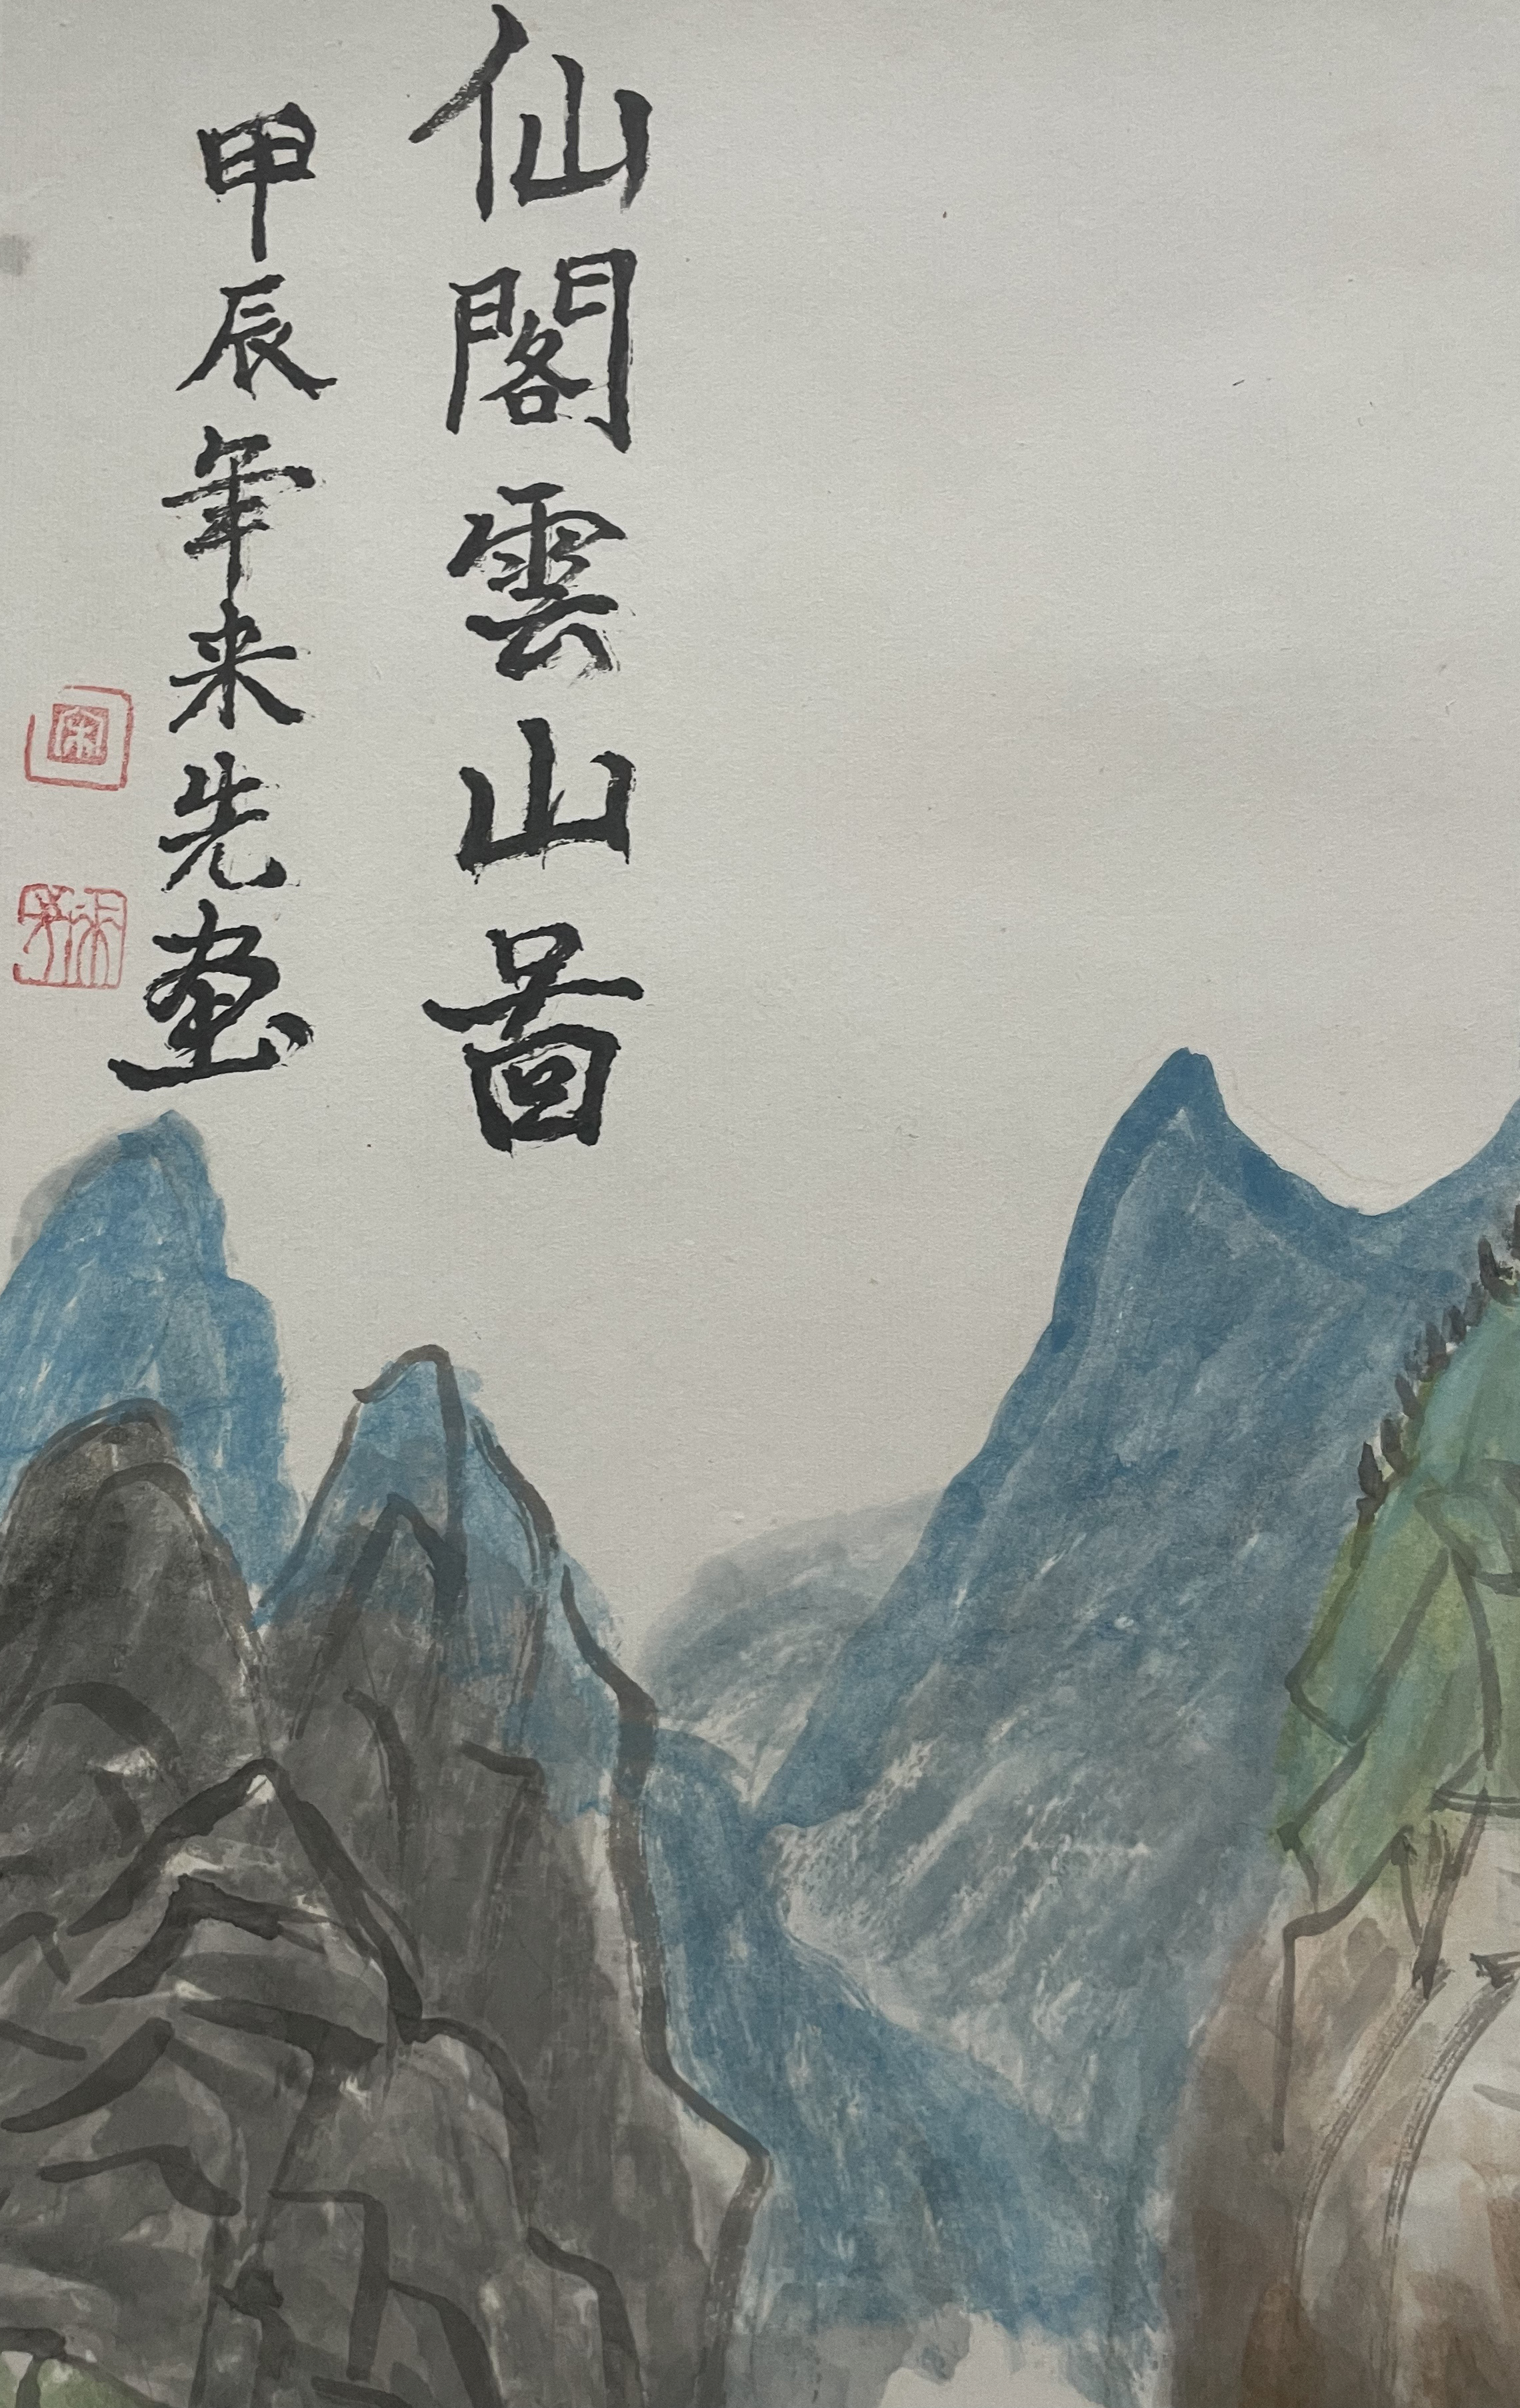 仙閣雲山啚
甲辰年来先画